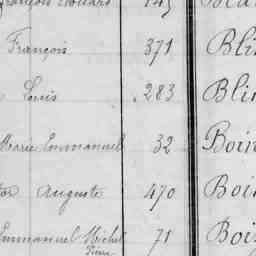 François 371 Bli
Louis 283 Bli
Marie Emmanuel 32 Boi
Auguste 470 Boi
Emmanuel Michel 71 Boi